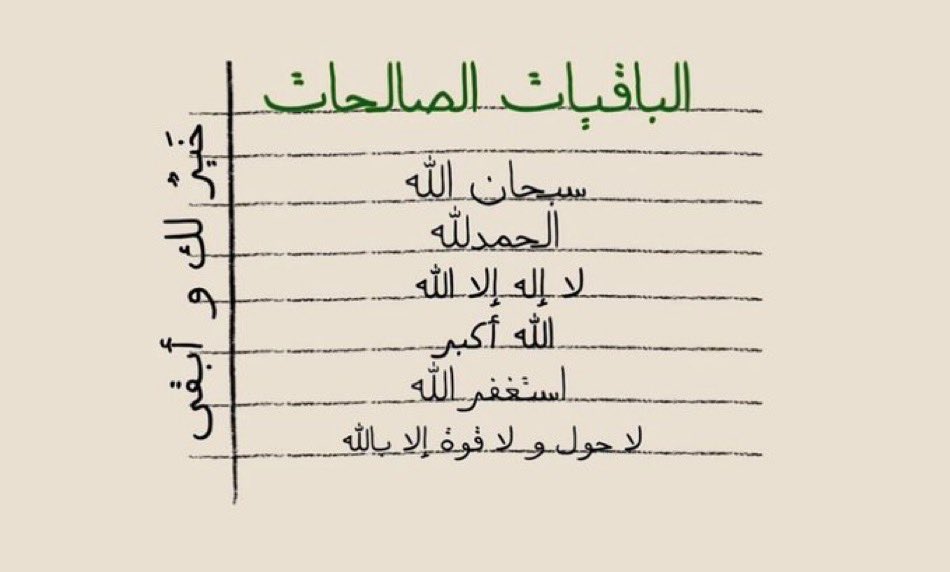 الباقيات الصالحات
سبحان الله
الحمدلله
لا إله إلا الله
الله أكبر
استغفر الله
لا حول و لا قوة إلا بالله
خَيرٌ لك و أبقى